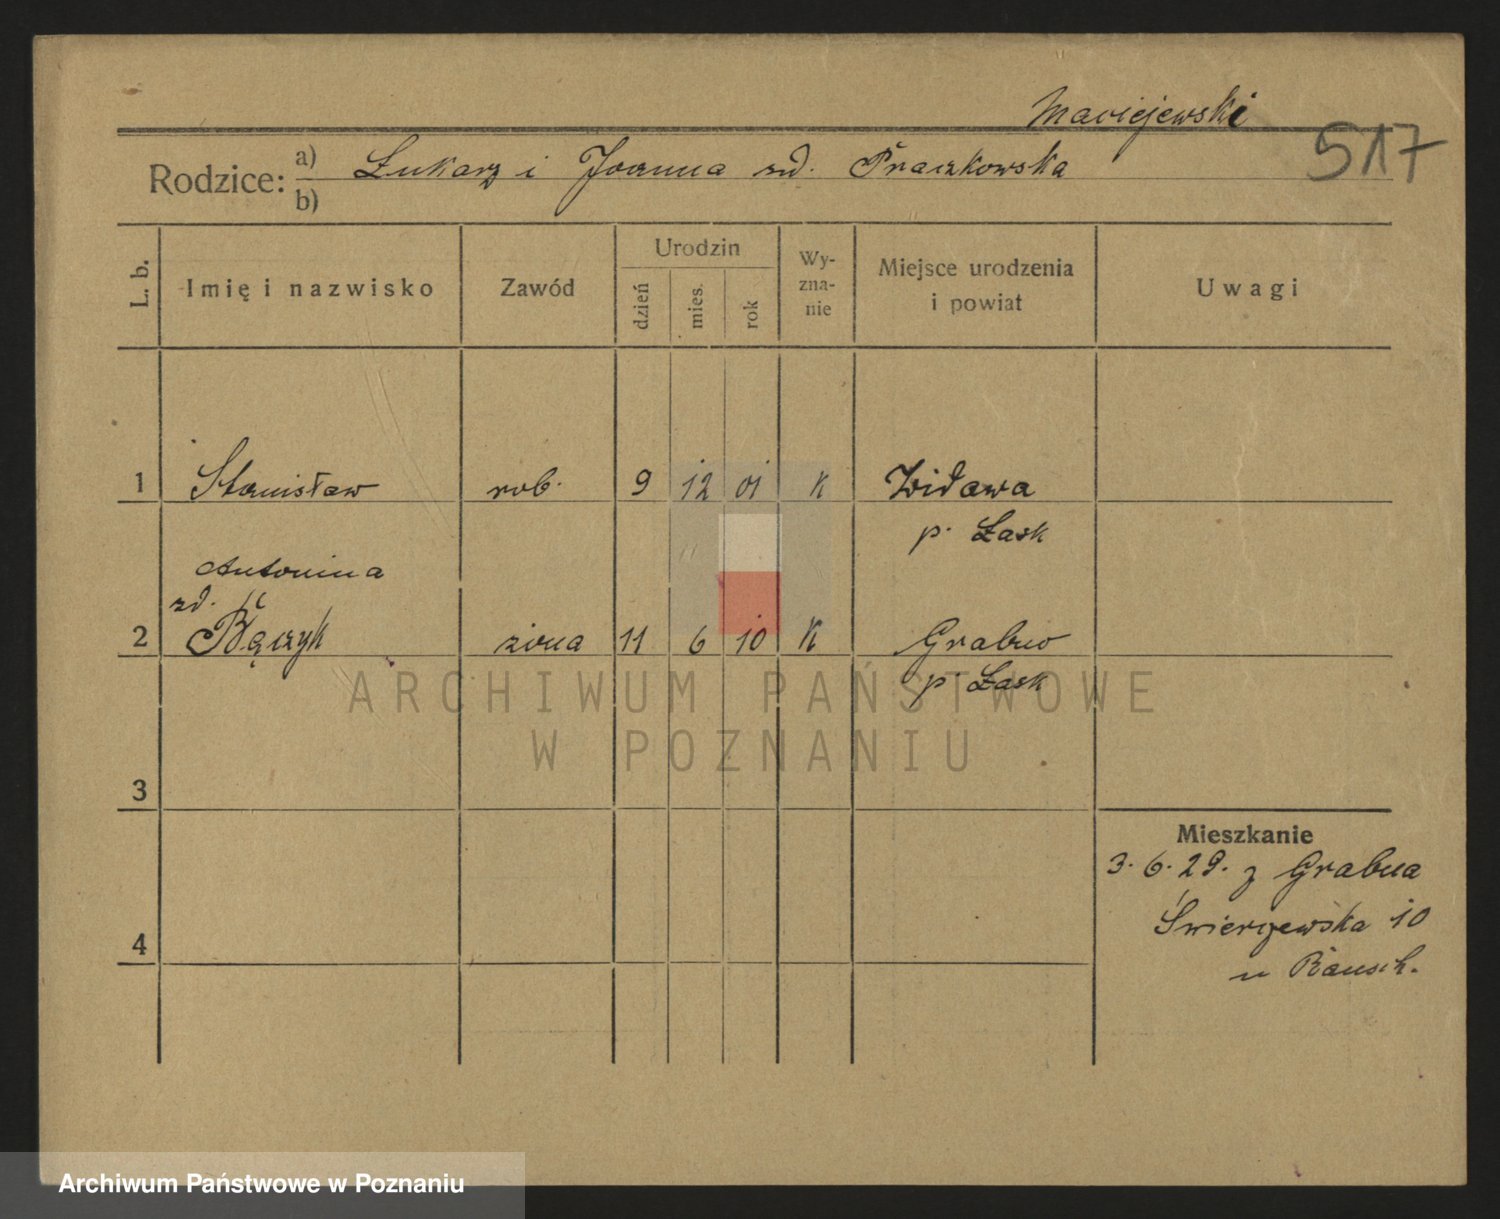 Maciejewski
517
Rodzice: a) Łukasz i Joanna zd. Praczkowska
b)
L. b.
Imię i nazwisko
Zawód
Urodzin
dzień
mies.
rok
Wy-
zna-
nie
Miejsce urodzenia
i powiat
Uwagi
1 Stanisław rob. 9 12 01 K Widawa
p. Łask
Antonina
zd.
2 Bączyk żona 11 6 10 K Grabno
p. Łask
ARCHIWUM PAŃSTWOWE
W POZNANIU
3
Mieszkanie
3. 6. 29. z Grabna
4
Świerzewska 10
u Rausch.
Archiwum Państwowe w Poznaniu